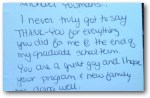 I never truly got to say
THANK-YOU for everything
you did for me @ the end of
my graduate school term.
You are a great guy and I hope
your program, & new family
are doing well.